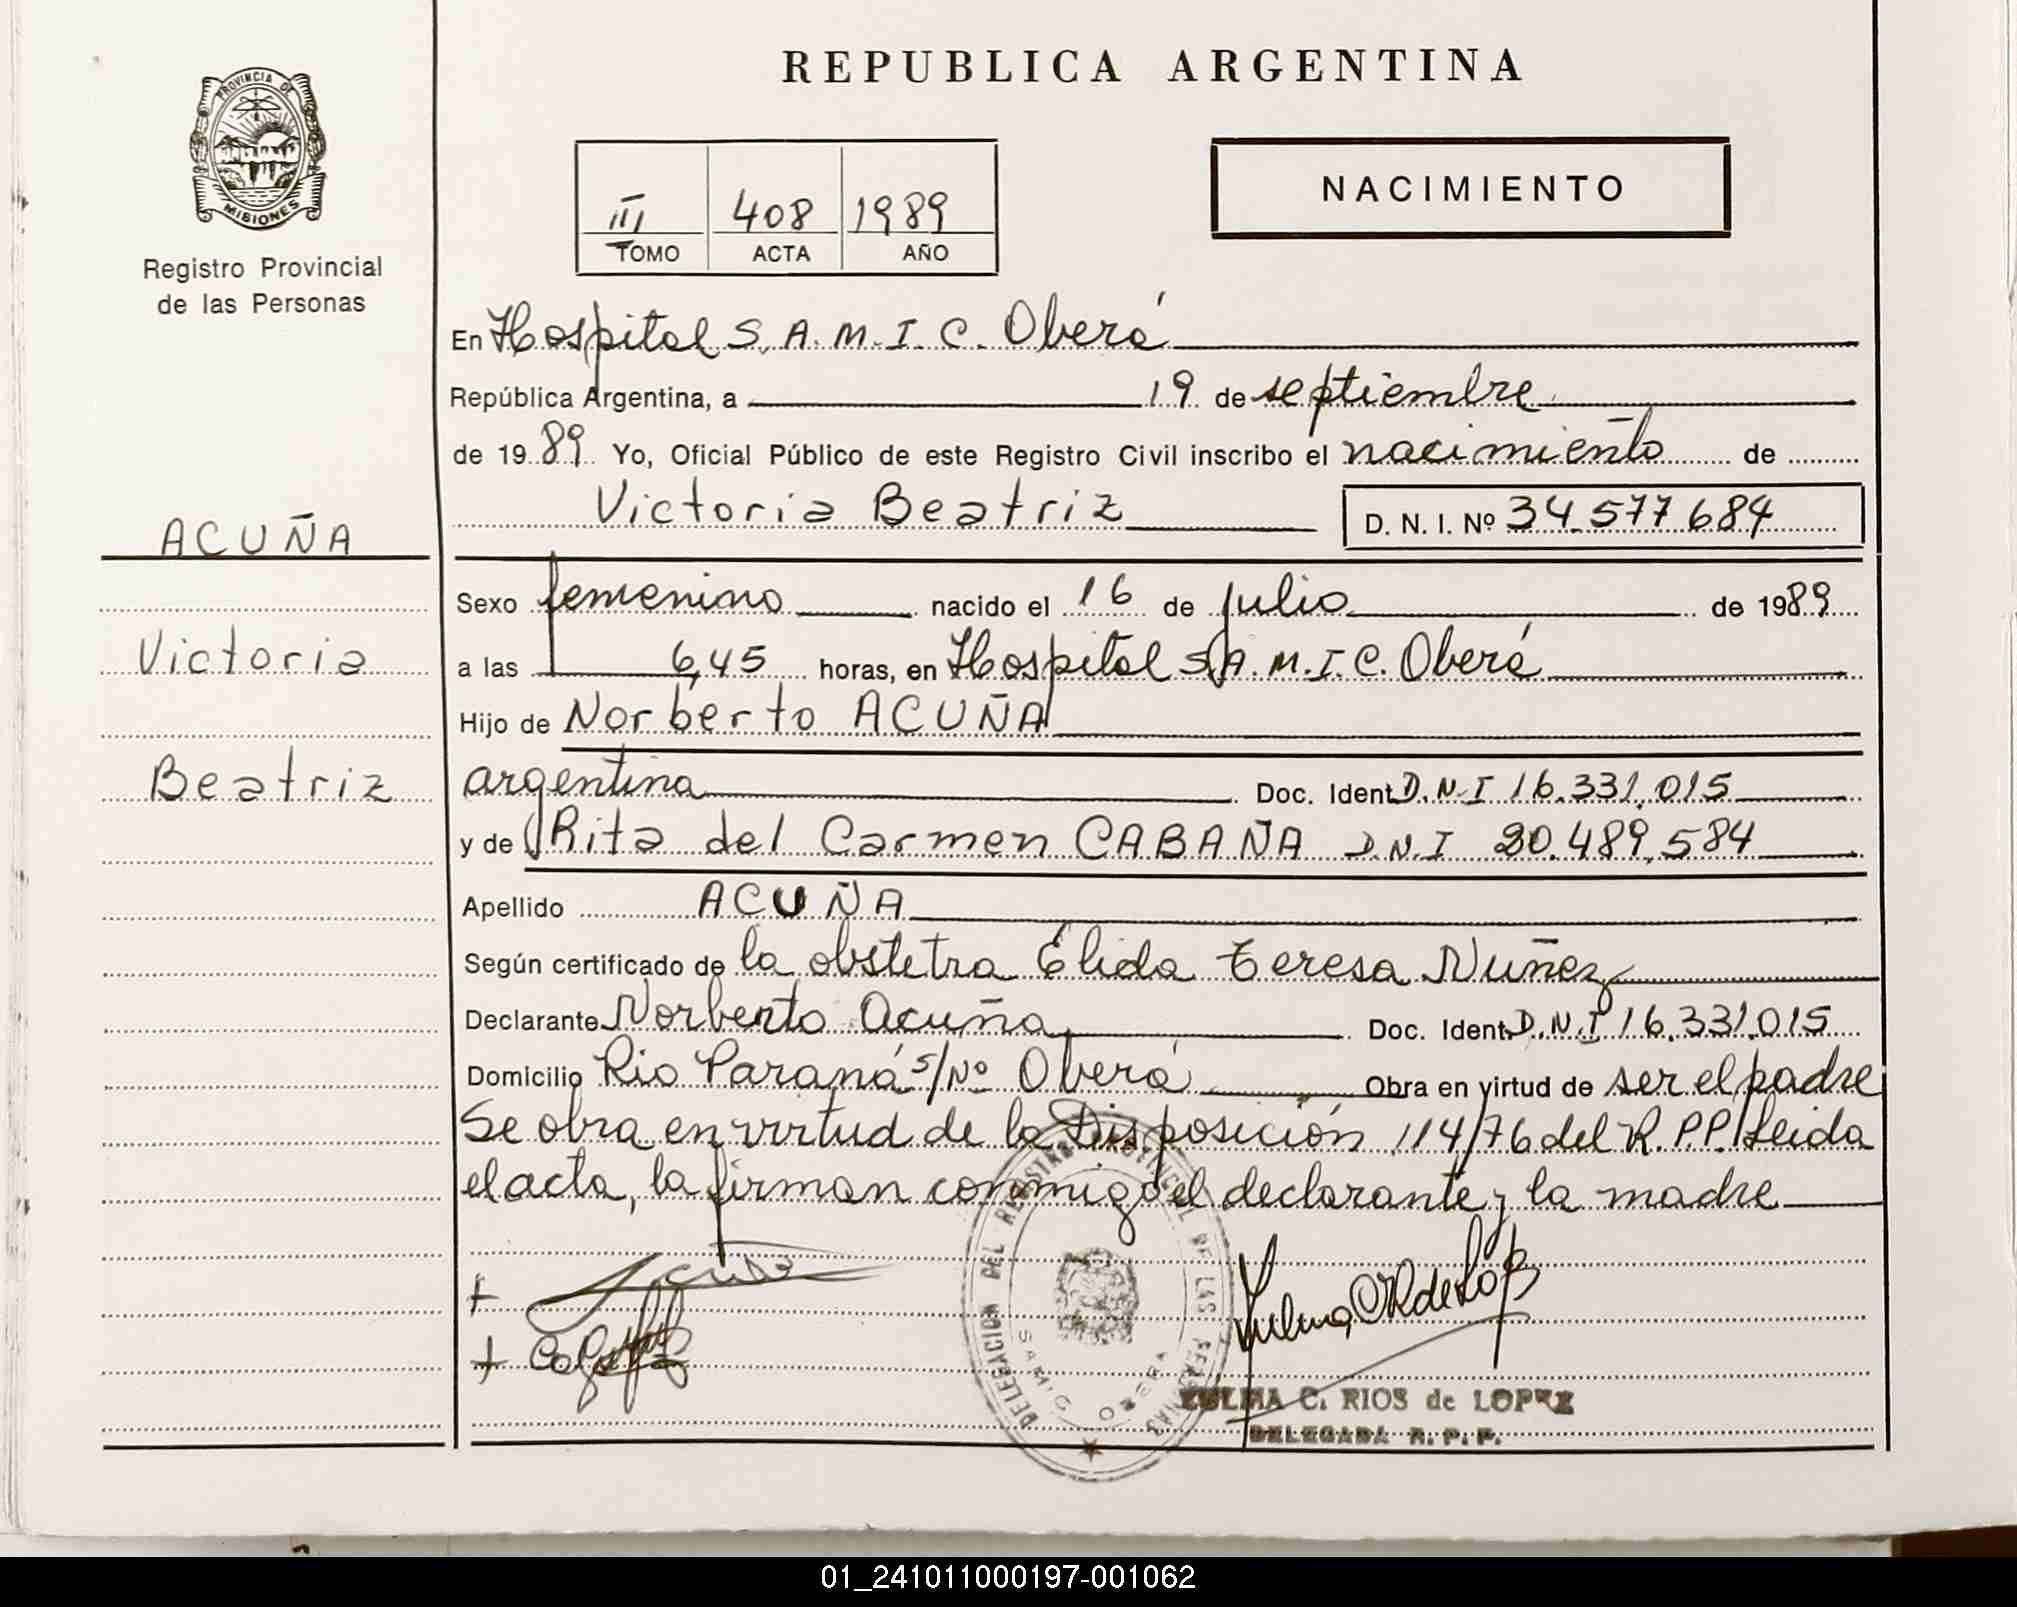 REPUBLICA ARGENTINA
PROVINCIA DE
MISIONES
Registro Provincial
de las Personas
III 408 1989
TOMO ACTA AÑO
NACIMIENTO
En Hospital S.A.M.I.C. Oberá
República Argentina, a 19 de septiembre
de 1989 Yo, Oficial Público de este Registro Civil inscribo el nacimiento de
Victoria Beatriz D. N. I. Nº 34.577684
ACUÑA
Victoria
Beatriz
Sexo femenino nacido el 16 de julio de 1989
a las 6,45 horas, en Hospital S.A.M.I.C. Oberá
Hijo de Norberto ACUÑA
argentina Doc. Ident. D.N.I 16.331.015
y de Rita del Carmen CABAÑA D.N.I 20.489.584
Apellido ACUÑA
Según certificado de la obstetra Élida Teresa Nuñez
Declarante Norberto Acuña Doc. Ident. D.N.I 16.331.015
Domicilio Rio Paraná s/Nº Oberá Obra en virtud de ser el padre
Se obra en virtud de la Disposición 114/76 del R.P.P. Leida
el acta, la firman conmigo el declarante y la madre
DELEGACION DEL REGISTRO PROVINCIAL DE LAS PERSONAS
SAMIC OBERA
ZULMA C. RIOS de LOPEZ
DELEGADA R. P. P.
01_241011000197-001062